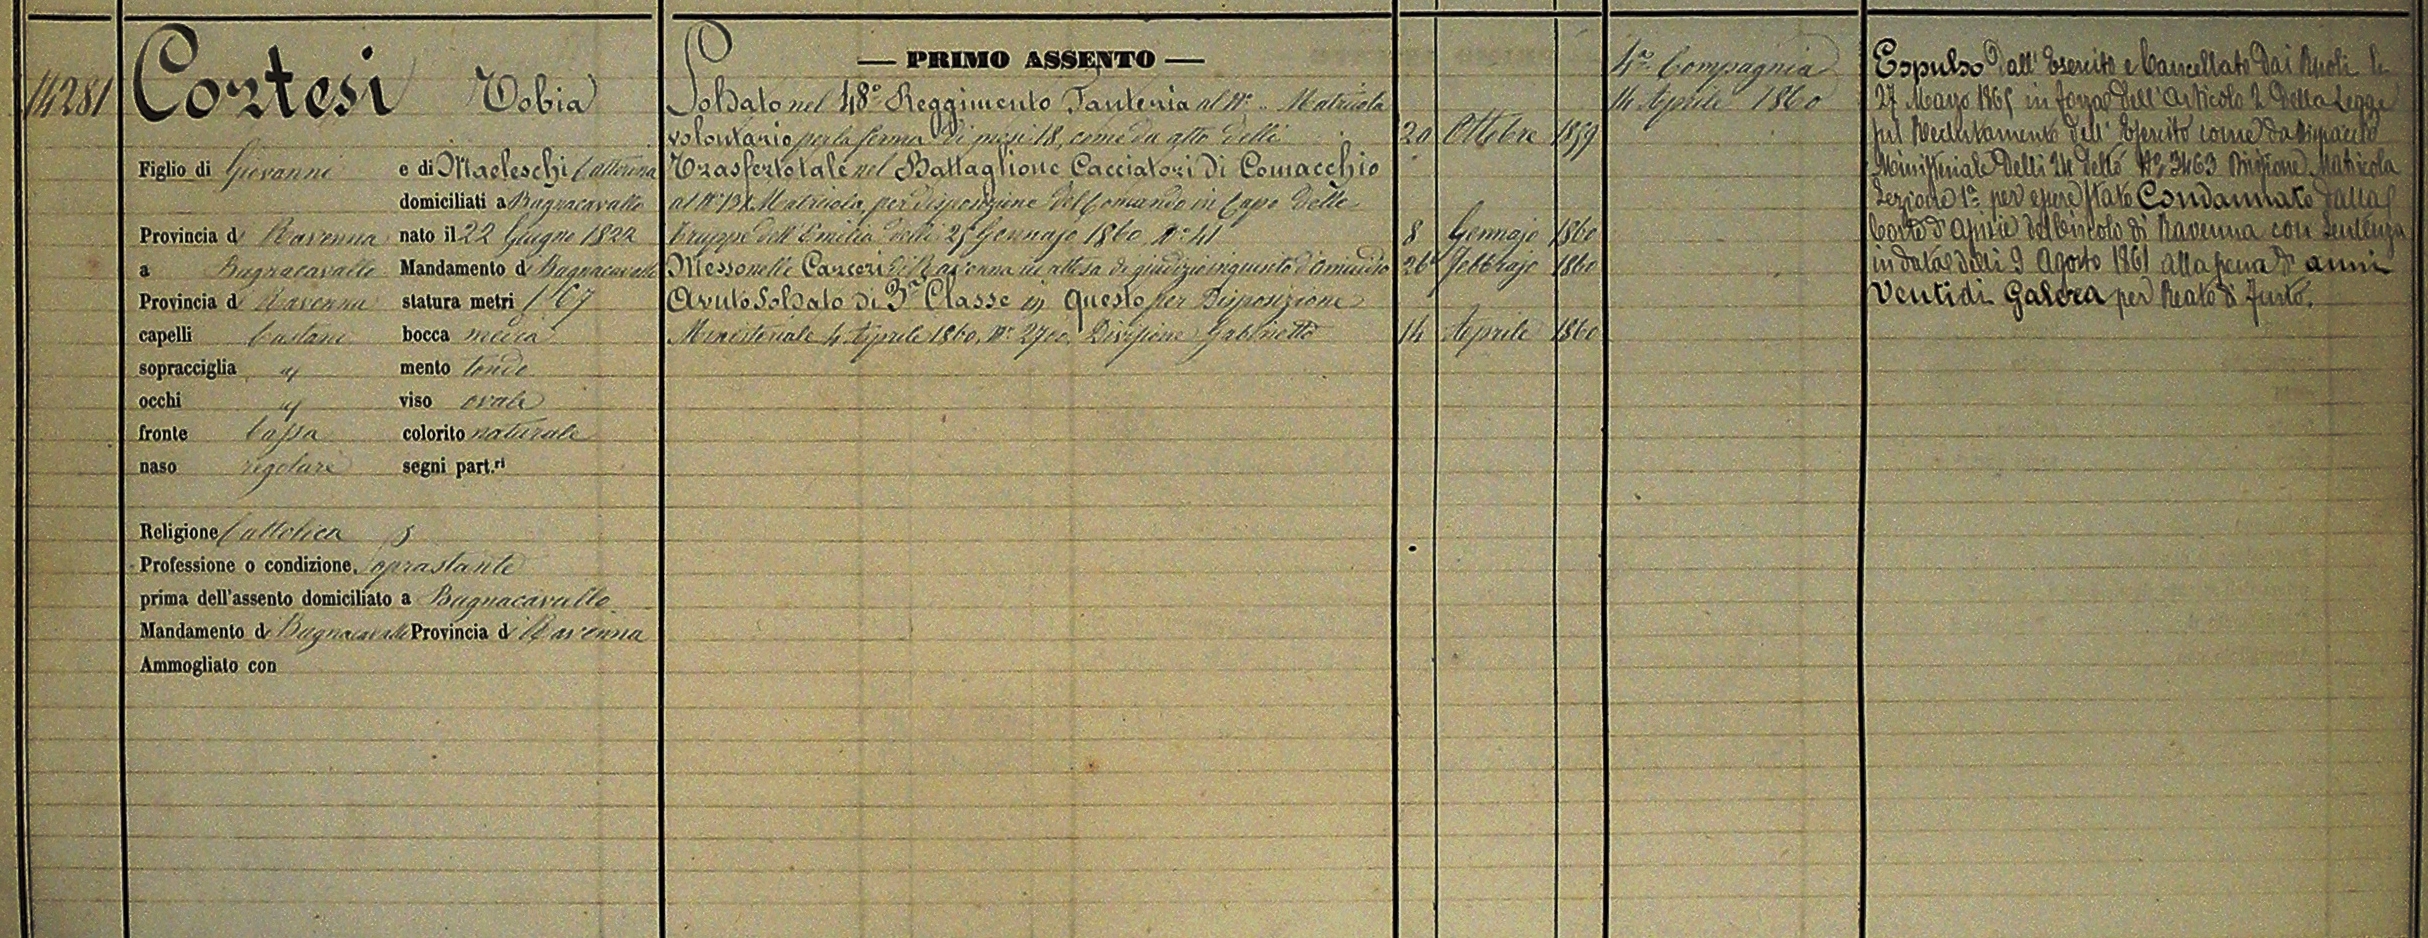 14281
Cortesi Tobia
Figlio di Giovanni e di Maeleschi Catterina
domiciliati a Bagnacavallo
Provincia di Ravenna nato il 22 Giugno 1822
a Bagnacavallo Mandamento di Bagnacavallo
Provincia di Ravenna statura metri 1 67
capelli Castani bocca media
sopracciglia id mento tondo
occhi id viso ovale
fronte bassa colorito naturale
naso regolare segni part.ri
Religione Cattolica
Professione o condizione Soprastante
prima dell'assento domiciliato a Bagnacavallo
Mandamento di Bagnacavallo Provincia di Ravenna
Ammogliato con
— PRIMO ASSENTO —
Soldato nel 48° Reggimento Fanteria al N° „ Matricola
volontario per la ferma di mesi 18, come da atto delli 20 Ottobre 1859
Trasferto tale nel Battaglione Cacciatori di Comacchio
al N° Matricola, per disposizione del Comando in Capo delle
Truppe dell'Emilia delli 25 Gennajo 1860 N° 41 8 Gennajo 1860
Messo nelle Carceri di Ravenna in attesa di giudizio inquisito d'omicidio 26 Febbrajo 1860
Avuto Soldato di 3ª Classe in questo per Disposizione
Ministeriale 4 Aprile 1860, N° 2700, Divisione Gabinetto 14 Aprile 1860
4ª Compagnia
14 Aprile 1860
Espulso dall'Esercito e Cancellato dai Ruoli li
27 Marzo 1865 in forza dell'Articolo 2 della Legge
sul Reclutamento dell'Esercito come da Dispaccio
Ministeriale delli 24 detto N° 3463 Divisione Matricola
Sezione 1ª per essere stato Condannato dalla
Corte d'Assisie del Circolo di Ravenna con Sentenza
in data delli 9 Agosto 1861 alla pena di anni
Venti di Galera per Reato di Furto.